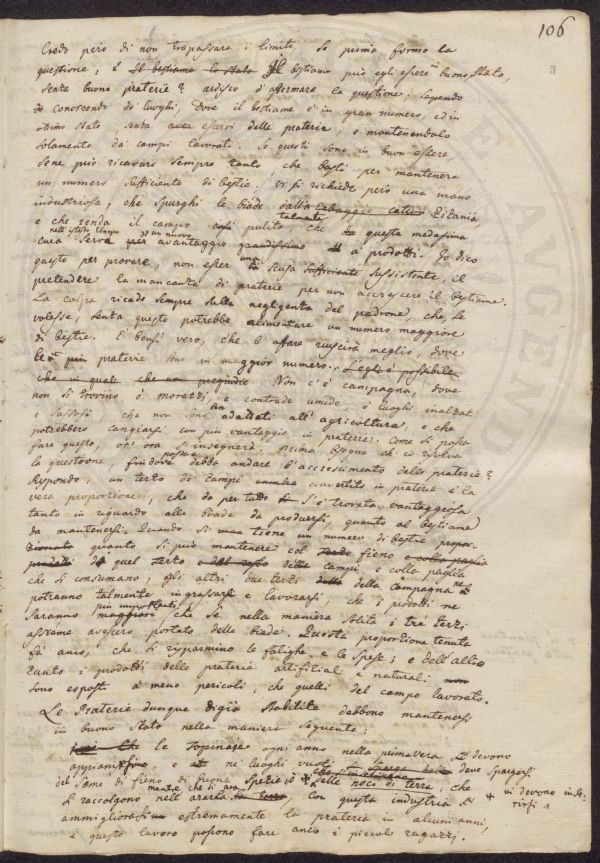 106
5
Credo però di non trapassare i limiti, se prima formo la
questione, Il bestiame può egli essere in buono stato,
senza buone praterie? ardisco d'affermare la questione:
conoscendo de' luoghi, dove il bestiame è in gran numero, ed in
ottimo stato, senza avervi delle praterie, e mantenendolo
solamente da' campi lavorati. Se questi sono in buon essere,
se ne può ricavare sempre tanto, che basti per mantenere
un numero sufficiente di bestie: vi si richiede però una mano
industriosa, che spurghi le biade dalla Zizania,
e che renda il campo così pulito, talmente che questa medesima
nell'istesso tempo
cura serva di un nuovo avantaggio a' prodotti. Io dico
questo per provare, non esser una scusa sussistente, il
pretendere la mancanza di praterie per non accrescere il bestiame.
La colpa ricade sempre sulla negligenza del padrone, che se
volesse, senza questo potrebbe alimentare un numero maggiore
di bestie. È bensì vero, che l'affare riuscirà meglio, dove
le praterie sono in maggior numero. L'egli è possibile
che in quale che non pregiudice Non c'è campagna, dove
non si trovino ò morazzi, ò contrade umide, ò luoghi inalzati
e sassosi che non sono adattati all'agricoltura, e che
potrebbero cangiarsi con più vantaggio in praterie. Come si possa
fare questo, or' ora s'insegnerà. Prima bisogna che si risolva
la questione, fin dove possa debba andare l'accrescimento delle praterie?
Rispondo: un terzo de' campi convertito in praterie è la
vera proporzione, che da per tutto si è trovata vantaggiosa
tanto in riguardo alle biade da prodursi, quanto al bestiame
da mantenersi. Quando si tiene un numero di bestie
quanto si può mantenere col fieno e colla paglia
di quel terzo campi, e colla paglia
che si consumano, gli altri due terzi della campagna
potranno talmente ingrassarsi e lavorarsi, che i prodotti ne
saranno più importanti, che se nella maniera solita i trè terzi
assieme avessero portato delle biade. Questa proporzione tenuta
fà anco, che si risparmino le fatighe e le spese; e dell'altro
canto i prodotti delle praterie artificiali e naturali
sono esposti a meno pericoli, che quelli del campo lavorato.
Le Praterie dunque digià stabilite debbono mantenersi
in buono stato nella maniera seguente:
le Topinare ogni anno nella primavera devono
appianarsi, e ne' luoghi vuoti deve spargersi
del seme di fieno di buona spezie, che
si raccolgono nell'ararla, con questa industria
+ vi devono inserirsi
ammigliorasi estremamente la prateria in alcuni anni,
e questo lavoro possono fare anco i piccoli ragazzi.